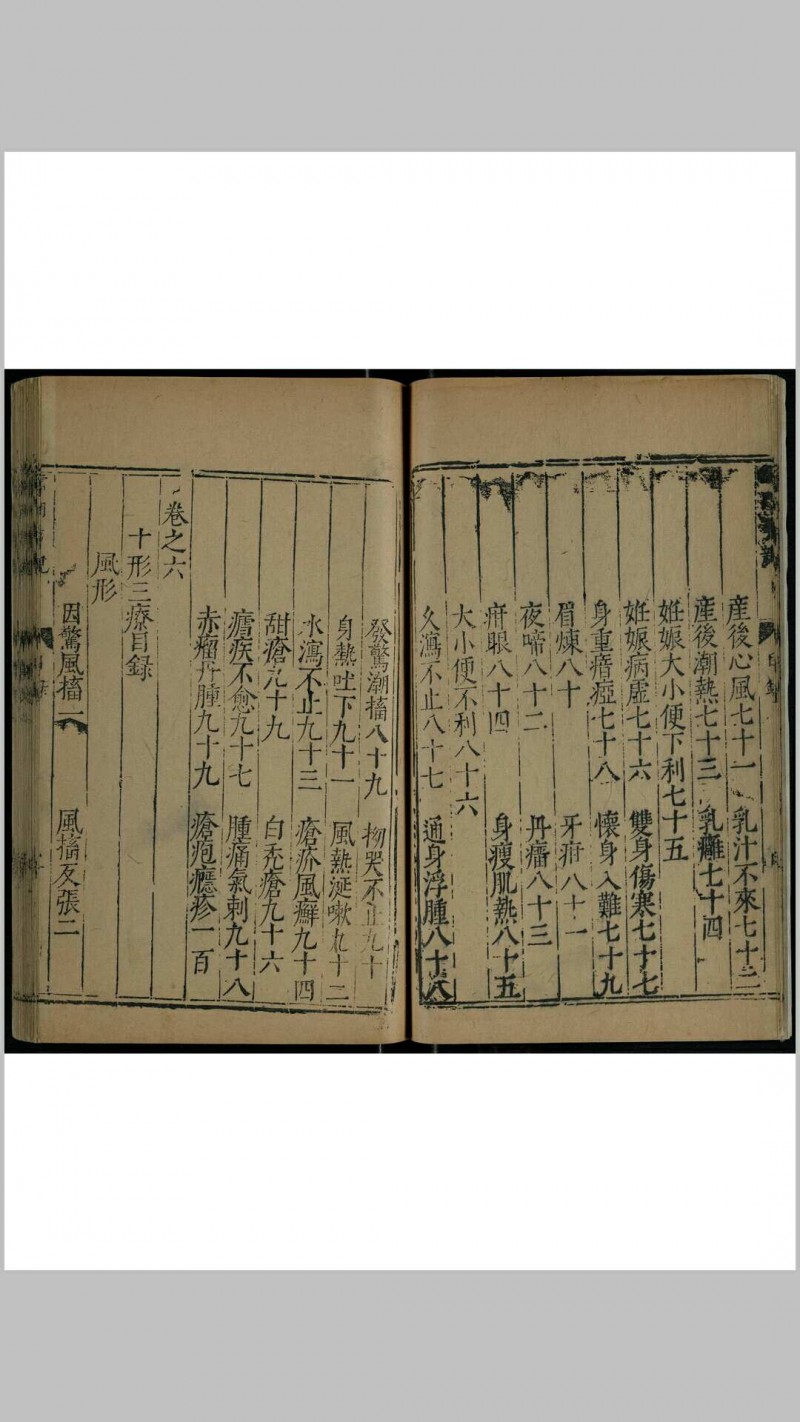 産後心風七十一 乳汁不來七十二
産後潮熱七十三 乳癰七十四
姙娠大小便下利七十五
姙娠病虛七十六 雙身傷寒七十七
身重瘖瘂七十八 懷身入難七十九
眉煉八十 牙疳八十一
夜啼八十二 丹瘤八十三
疳眼八十四 身瘦肌熱八十五
大小便不利八十六
久瀉不止八十七 通身浮腫八十八
發驚潮搐八十九 拗哭不止九十
身熱吐下九十一 風熱涎嗽九十二
水瀉不止九十三 瘡疥風癬九十四
甜瘡九十九 白禿瘡九十六
瘧疾不愈九十七 腫痛氣刺九十八
赤瘤丹腫九十九 瘡疱癮疹一百
卷之六
十形三療目録
風形
因驚風搐一 風搐反張二